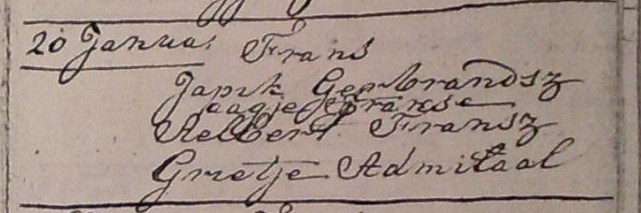 20 Januar Frans
Japik Gerbrandsz
aagje Franse
Aelbert Fransz
Grietje Admiraal